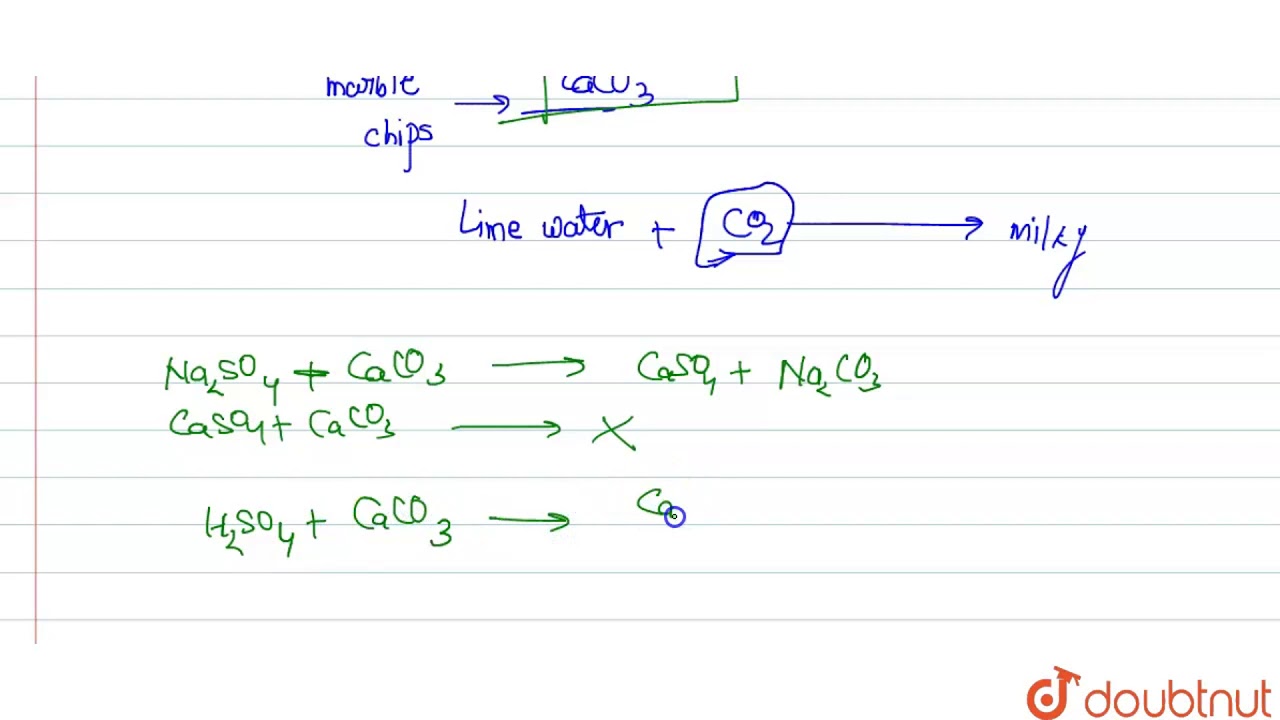 marble → CaCO3
chips
Lime water + CO2 → milky
Na2SO4 + CaCO3 → CaSO4 + Na2CO3
CaSO4 + CaCO3 → X
H2SO4 + CaCO3 → Ca
doubtnut